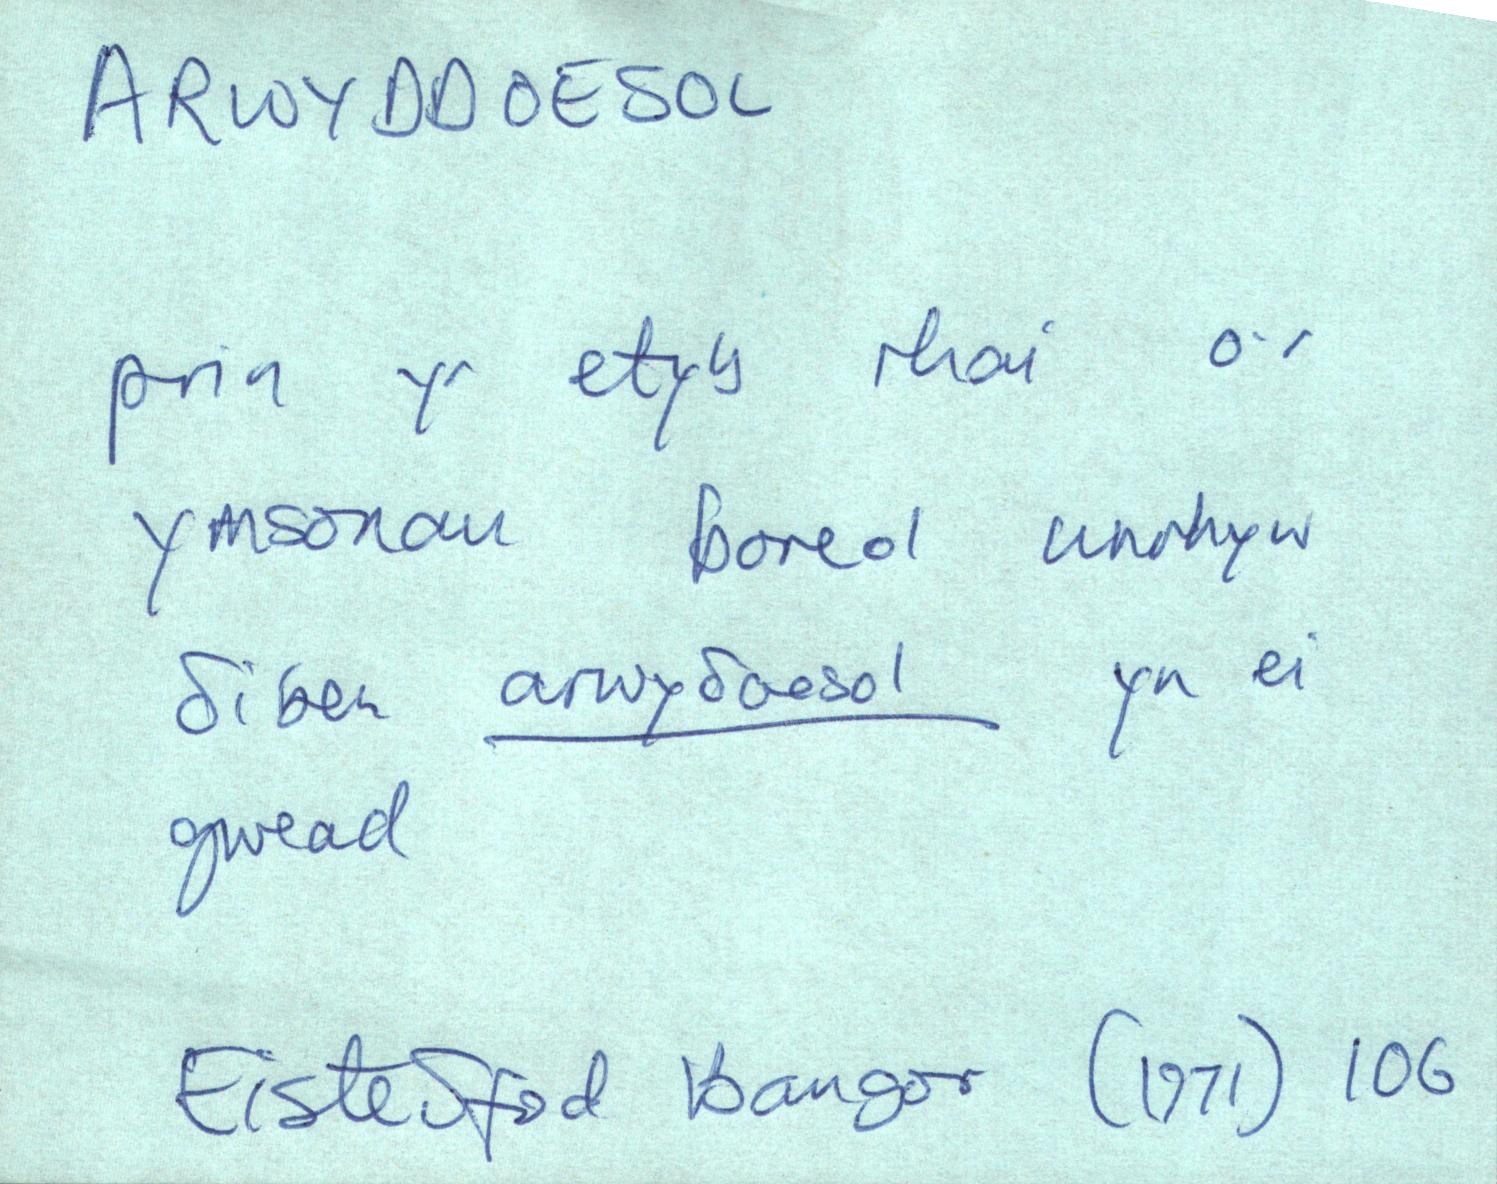 ARWYDDOESOL
prin yr etyb rhai o'r
ymsonau boreol unrhyw
δiben arwyδoesol yn ei
gwead
Eisteδfod Bangor (1971) 106